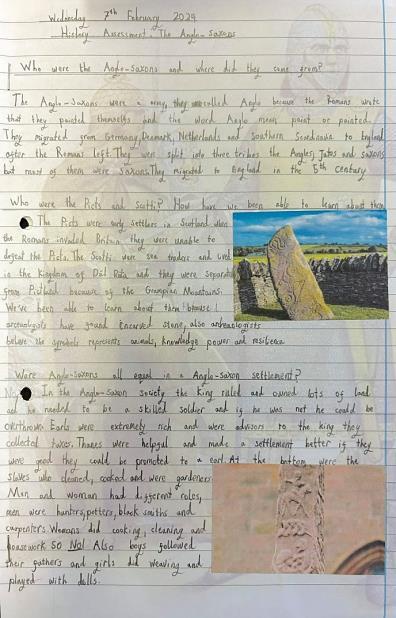 Wednesday 7th February 2024
History Assessment: The Anglo-Saxons
Who were the Anglo-Saxons and where did they come from?
The Anglo-Saxons were a army, they were called Anglo because the Romans wrote
that they painted themselfs and the word Anglo mean paint or painted.
They migrated from Germany, Denmark, Netherlands and southern Scandinavia to England
after the Romans left. They were split into three tribes the Angles, Jutes and saxons
but most of them were Saxons. They migrated to England in the 5th Century
Who were the Picts and Scotti? How have we been able to learn about them
The Picts were early settlers in Scotland when
the Romans invaded Britain they were unable to
defeat the Picts. The Scotti were sea traders and lived
in the kingdom of Dál Riata and they were separated
from Pictland because of the Grampian Mountains.
We've been able to learn about them because
archeologists have found Encarved stone, also archeologists
believe the symbols represents animals, knowledge, power and resilience
Were Anglo-Saxons all equal in a Anglo-Saxon settlement?
No In the Anglo-Saxon society the king ruled and owned lots of land
and he needed to be a skilled soldier and if he was not he could be
overthrown. Earls were extremely rich and were advisors to the king they
collected taxes. Thanes were helpful and made a settlement better if they
were good they could be promoted to a earl. At the bottom were the
slaves who cleaned, cooked and were gardeners
Man and woman had different roles,
men were hunters, potters, black smiths and
carpenters. Womans did cooking, cleaning and
housework SO No! Also boys followed
their fathers and girls did weaving and
played with dolls.